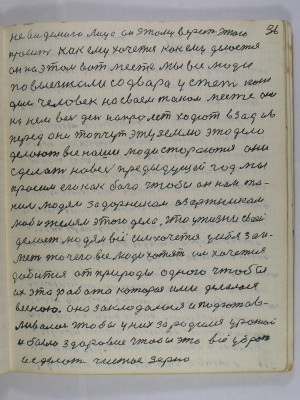 96
не видемого лица он этому верит этого
просит как ему хочется как ему делается
он на этом вот месте мы все люди
повыезжали со двора у степ если
один человек на своём таком месте он
на нем весь ден напролет ходют в зад и в
перед они топчут эту землю это дело
делают все наши люди стараются они
сделат новое предыдущей год мы
просим его как бога чтобы он нам по
людям задорникам азартникам
любителям этого дела. Это у жизни своей
делает людям всё им хочется у себя зай
мет то чего все люди хотят им хочется
добится от природы одного чтобы
их эта работа которая ими делалася
весною. она закладалася и подготав-
ливалася чтобы у них зародился урожай
и было здоровие чтобы это всё убрат
и сделат чистое зерно